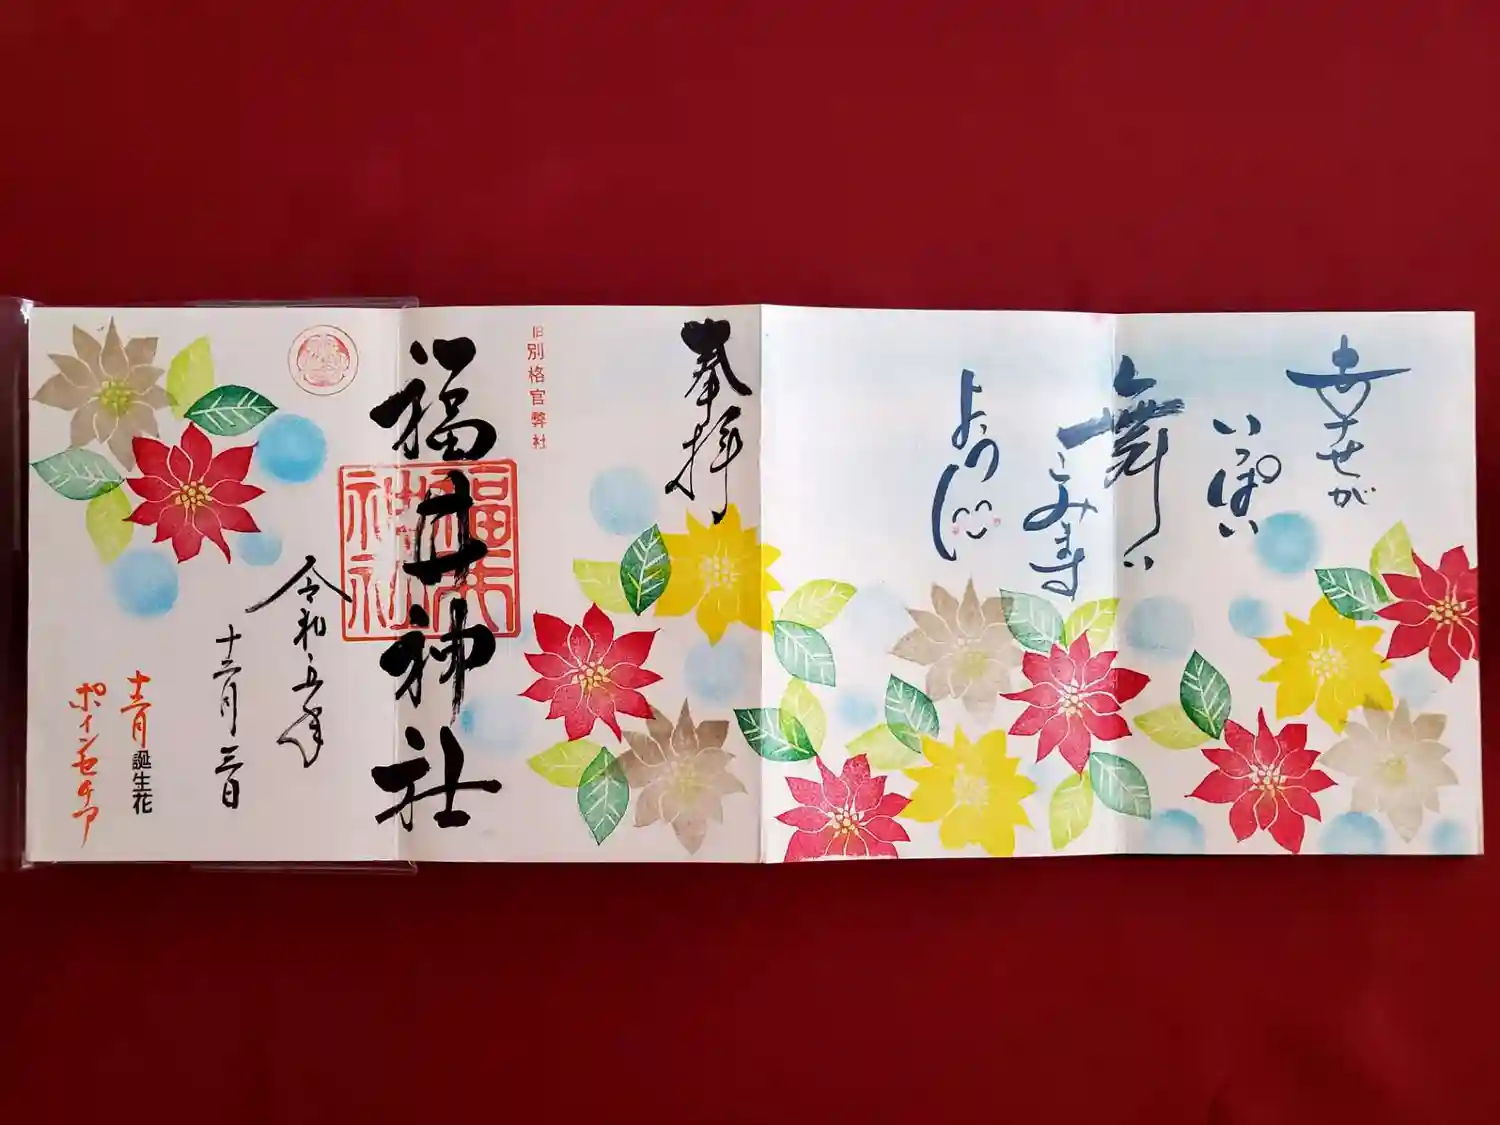 幸せが
いっぱい
舞い
こみます
ように
奉拝
旧別格官弊社
福井神社
福井神社
令和五年
十二月三日
十二月誕生花
ポインセチア